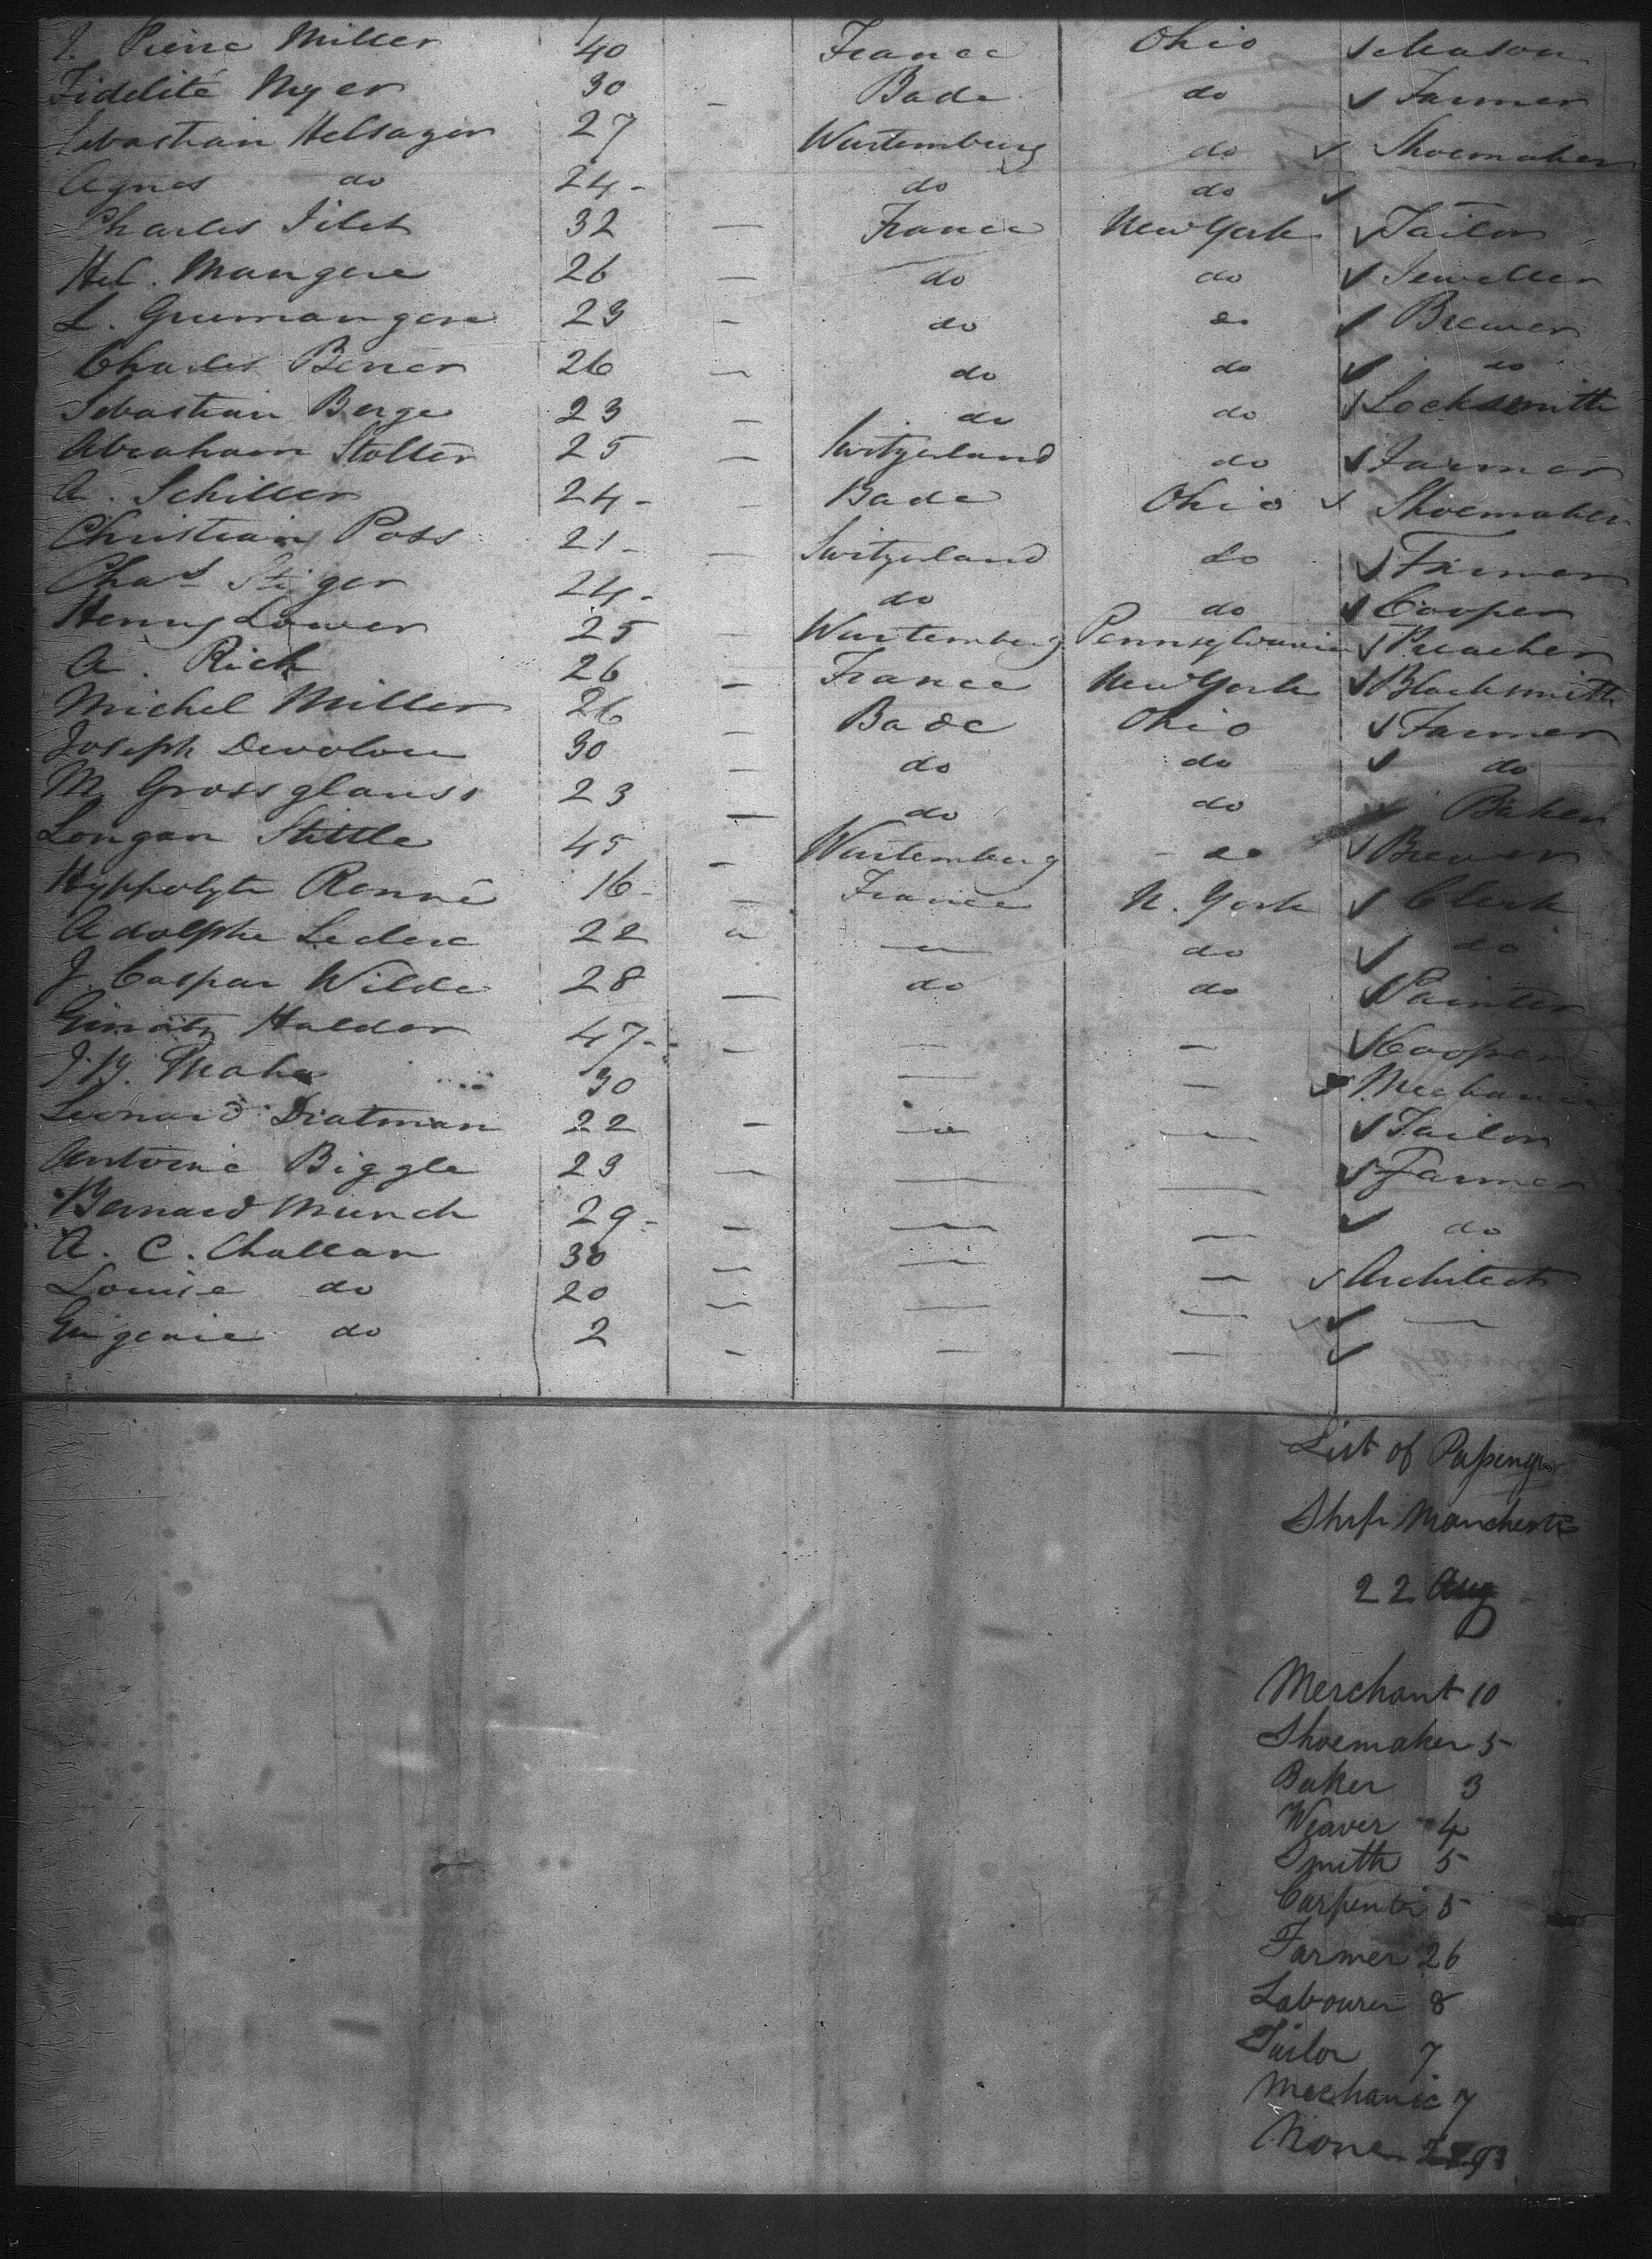 J. Pierre Miller 40 France Ohio Mason
Fidelité Myer 30 Bade do Farmer
Sebastian Helsager 27 Wurtemburg do Shoemaker
Agnes do 24 do do
Charles Jilet 32 France New York Tailor
Hel. Mangere 26 do do Jeweller
L. 23 do do Brewer
Charles Bener 26 do do do
Sebastian Berge 23 do do Locksmith
Abraham Stolter 25 Switzerland do Farmer
A. Schiller 24 Bade Ohio Shoemaker
Christian Poss 21 Switzerland do Farmer
Chas Stiger 24 do do Cooper
Henry Lower 25 Wurtemberg Pennsylvania Preacher
A. Rich 26 France New York Blacksmith
Michel Miller 26 Bade Ohio Farmer
Joseph 30 do do do
M Grossglauss 23 do do Baker
Longan Stittle 45 Wurtemberg do Brewer
Hyppolyte Renné 16 France N. York Clerk
Adolphe Leclerc 22 do do
J. Caspar Wilde 28 do do Painter
Halder 47 Cooper
30 Mechanic
Leonard Diatman 22 Tailor
Antoine Biggle 23 Farmer
Bernard Munch 29 do
A. C. Challan 30 Architect
Louise do 20
Eugenie do 2
List of Passengr
Ship Manchestr
22 Aug
Merchant 10
Shoemaker 5
Baker 3
Weaver 4
Smith 5
Carpentr 5
Farmer 26
Labourer 8
Tailor 7
Mechanic 7
None